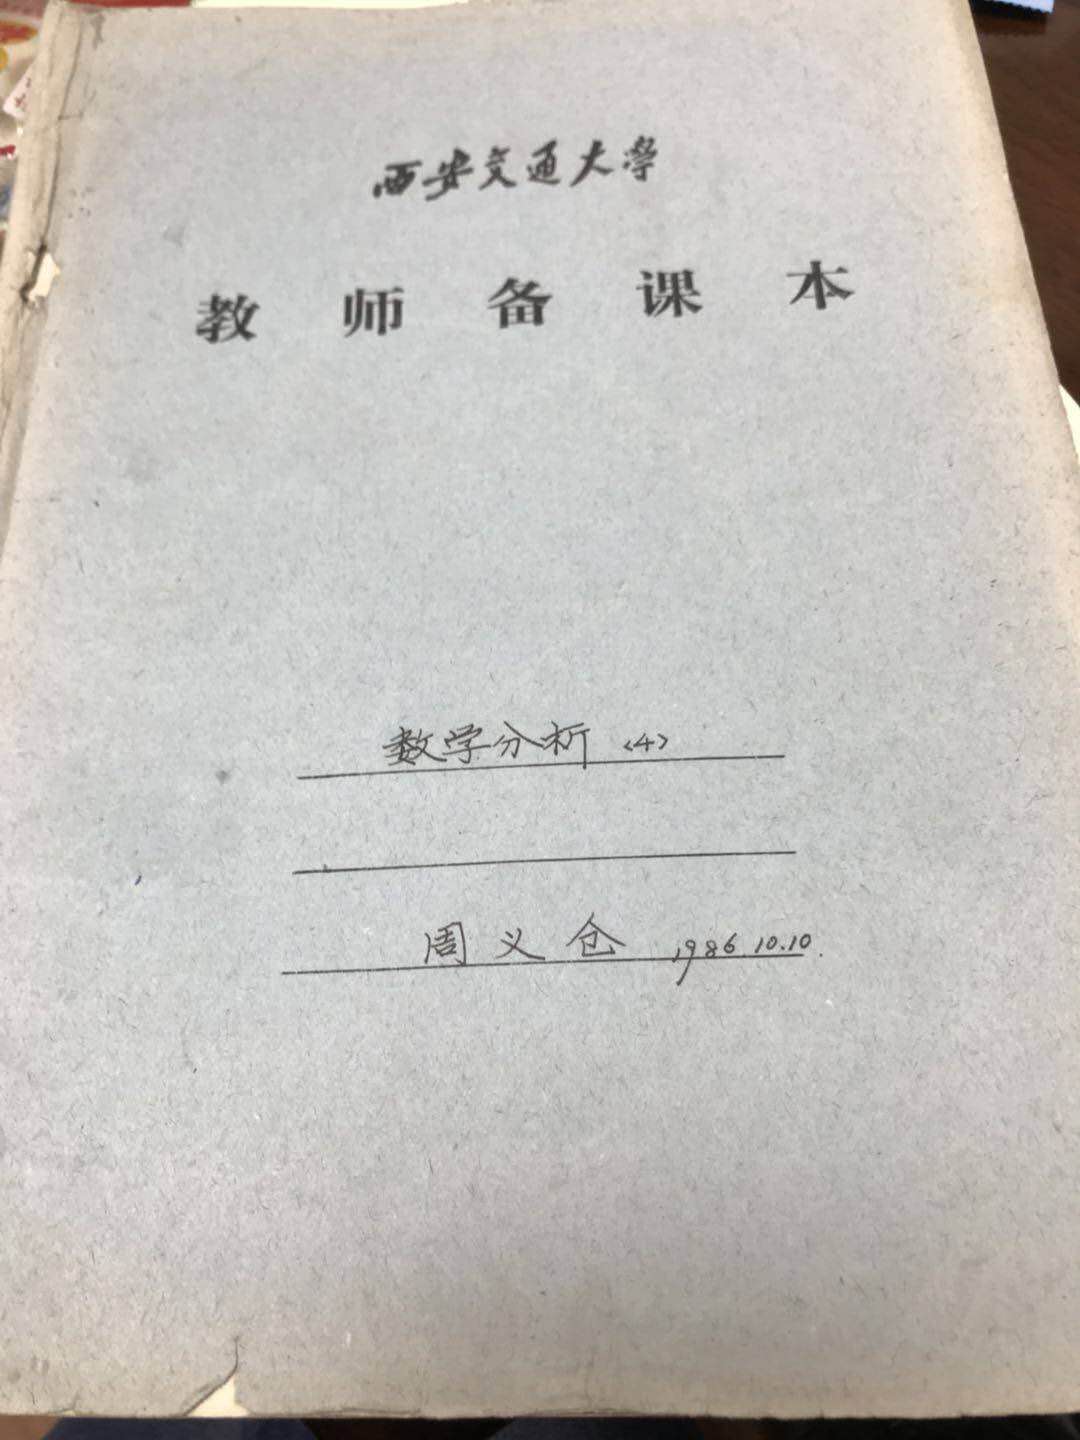 西安交通大學
教师备课本
数学分析〈4〉
周义仓 1986.10.10.